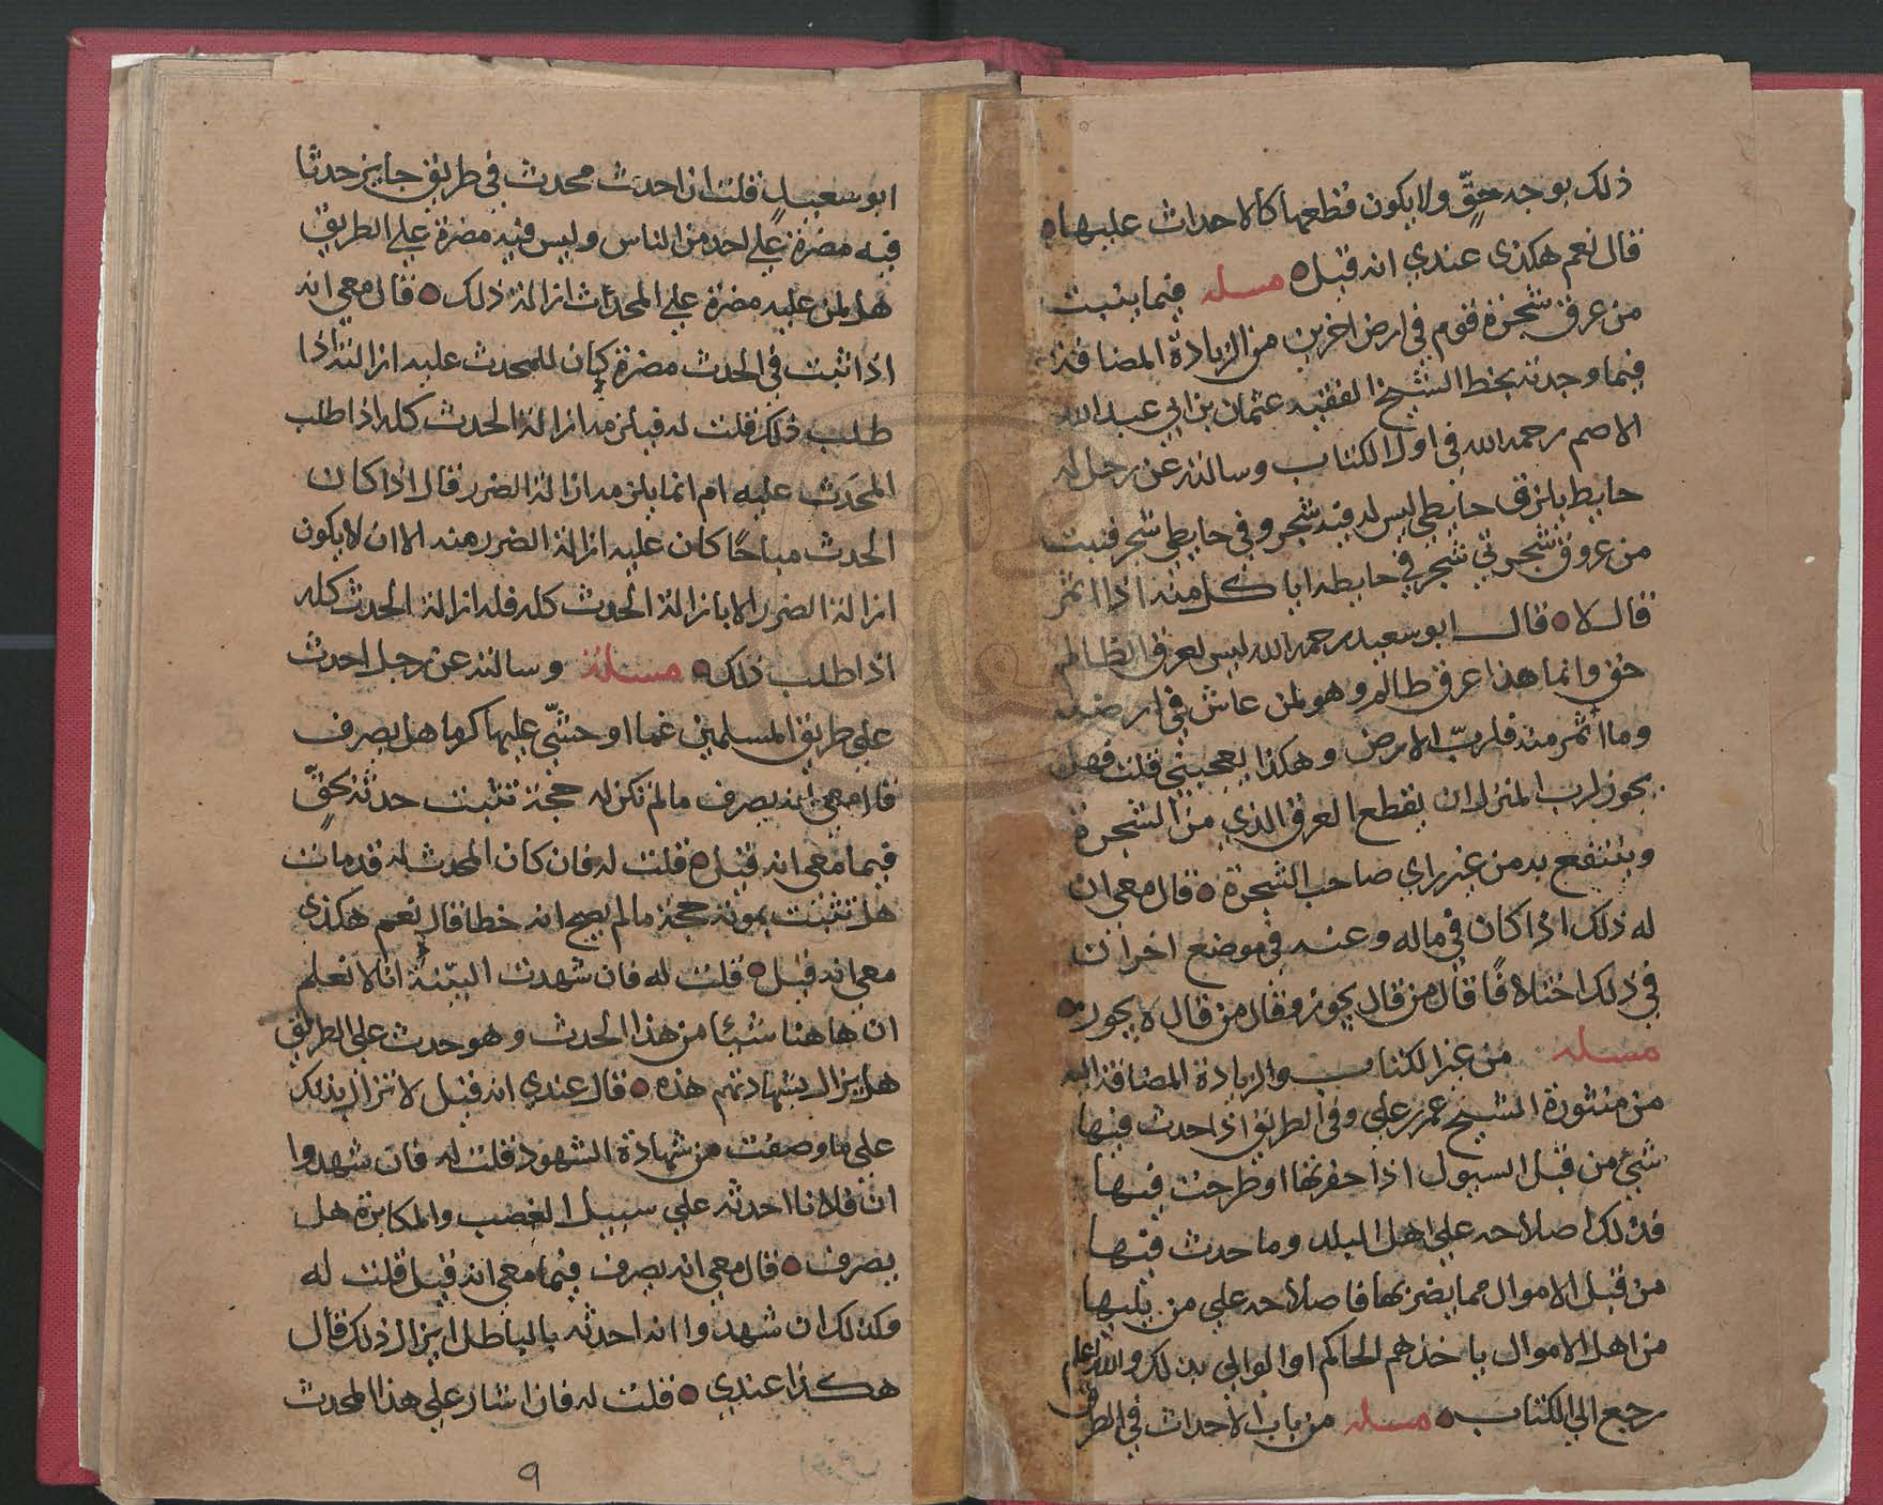 ذلك بوجه حق ولا يكون قطعها كالاحداث عليها
قال نعم هكذى عندي انه قيل مسله فيما ينبت
من عرق شجرة قوم في ارض اخرين من الزيادة المضافة
فيما وجدته بخط الشيخ الفقيه عثمان بن ابي عبد الله
الاصم رحمه الله في اول الكتاب وسالته عن رجل له
حايط يلزق حايطي ليس له فيه شجر وفي حايطي شجر فنبت
من عروق شجرتي شجر في حايطه اياكل منه اذا اثمر
قال لا قال ابو سعيد رحمه الله ليس لعرق الظالم
حق وانما هذا عرق ظالم وهو لمن عاش في ارضه
وما اثمر منه فلرب الارض وهكذا يعجبني قلت فهل
يجوز لرب المنزل ان يقطع العرق الذي من الشجرة
وينتفع به من غير راي صاحب الشجرة قال معي ان
له ذلك اذا كان في ماله وعنه في موضع اخر ان
في ذلك اختلافا قال من قال يجوز وقال من قال لا يجوز
مسله من غير الكتاب والزيادة المضافة اليه
من منثورة الشيخ عمر بن علي وفي الطريق اذا حدث فيها
شيء من قبل السيول اذا حفرتها او طرحت فيها
فذلك اصلاحه على اهل البلد وما حدث فيها
من قبل الاموال مما يضر بها فاصلاحه علي من يليها
من اهل الاموال ياخذهم الحاكم او الوالي بذلك والله اعلم
رجع الي الكتاب مسله من باب الاحداث في الطرق
ابو سعيد قلت ان احدث محدث في طريق جايز حدثا
فيه مضرة علي احد من الناس وليس فيه مضرة علي الطريق
هل لمن عليه مضرة علي المحدث ازالة ذلك قال معي انه
اذا ثبت في الحدث مضرة كان للمحدث عليه ازالته اذا
طلب ذلك قلت له فيلزمه ازالة الحدث كله اذا طلب
المحدث عليه ام انما يلزمه ازالة الضرر قال اذا كان
الحدث مباحا كان عليه ازالة الضرر منه الا ان لا يكون
ازالة الضرر الا بازالة الحدث كله فله ازالة الحدث كله
اذا طلب ذلك مسلة وسالته عن رجل احدث
علي طريق المسلمين غما او حشي عليها كرما هل يصرف
قال معي انه يصرف مالم تكن له حجة تثبت حدثه بحق
فيما معي انه قيل قلت له فان كان المحدث له قد مات
هل تثبت بموته حجة مالم يصح انه خطا قال نعم هكذى
معي انه قيل قلت له فان شهدت البينة انا لا نعلم
ان هاهنا شيئا من هذا الحدث وهو حدث علي الطريق
هل يزال بشهادتهم هذه قال عندي انه قيل لا تزال بذلك
علي ما وصفت من شهادة الشهود قلت له فان شهدوا
ان فلانا احدثه علي سبيل الغصب والمكابرة هل
يصرف قال معي انه يصرف فيما معي انه قيل قلت له
وكذلك ان شهدوا انه احدثه بالباطل ايزال ذلك قال
هكذا عندي قلت له فان اشار علي هذا المحدث
٩